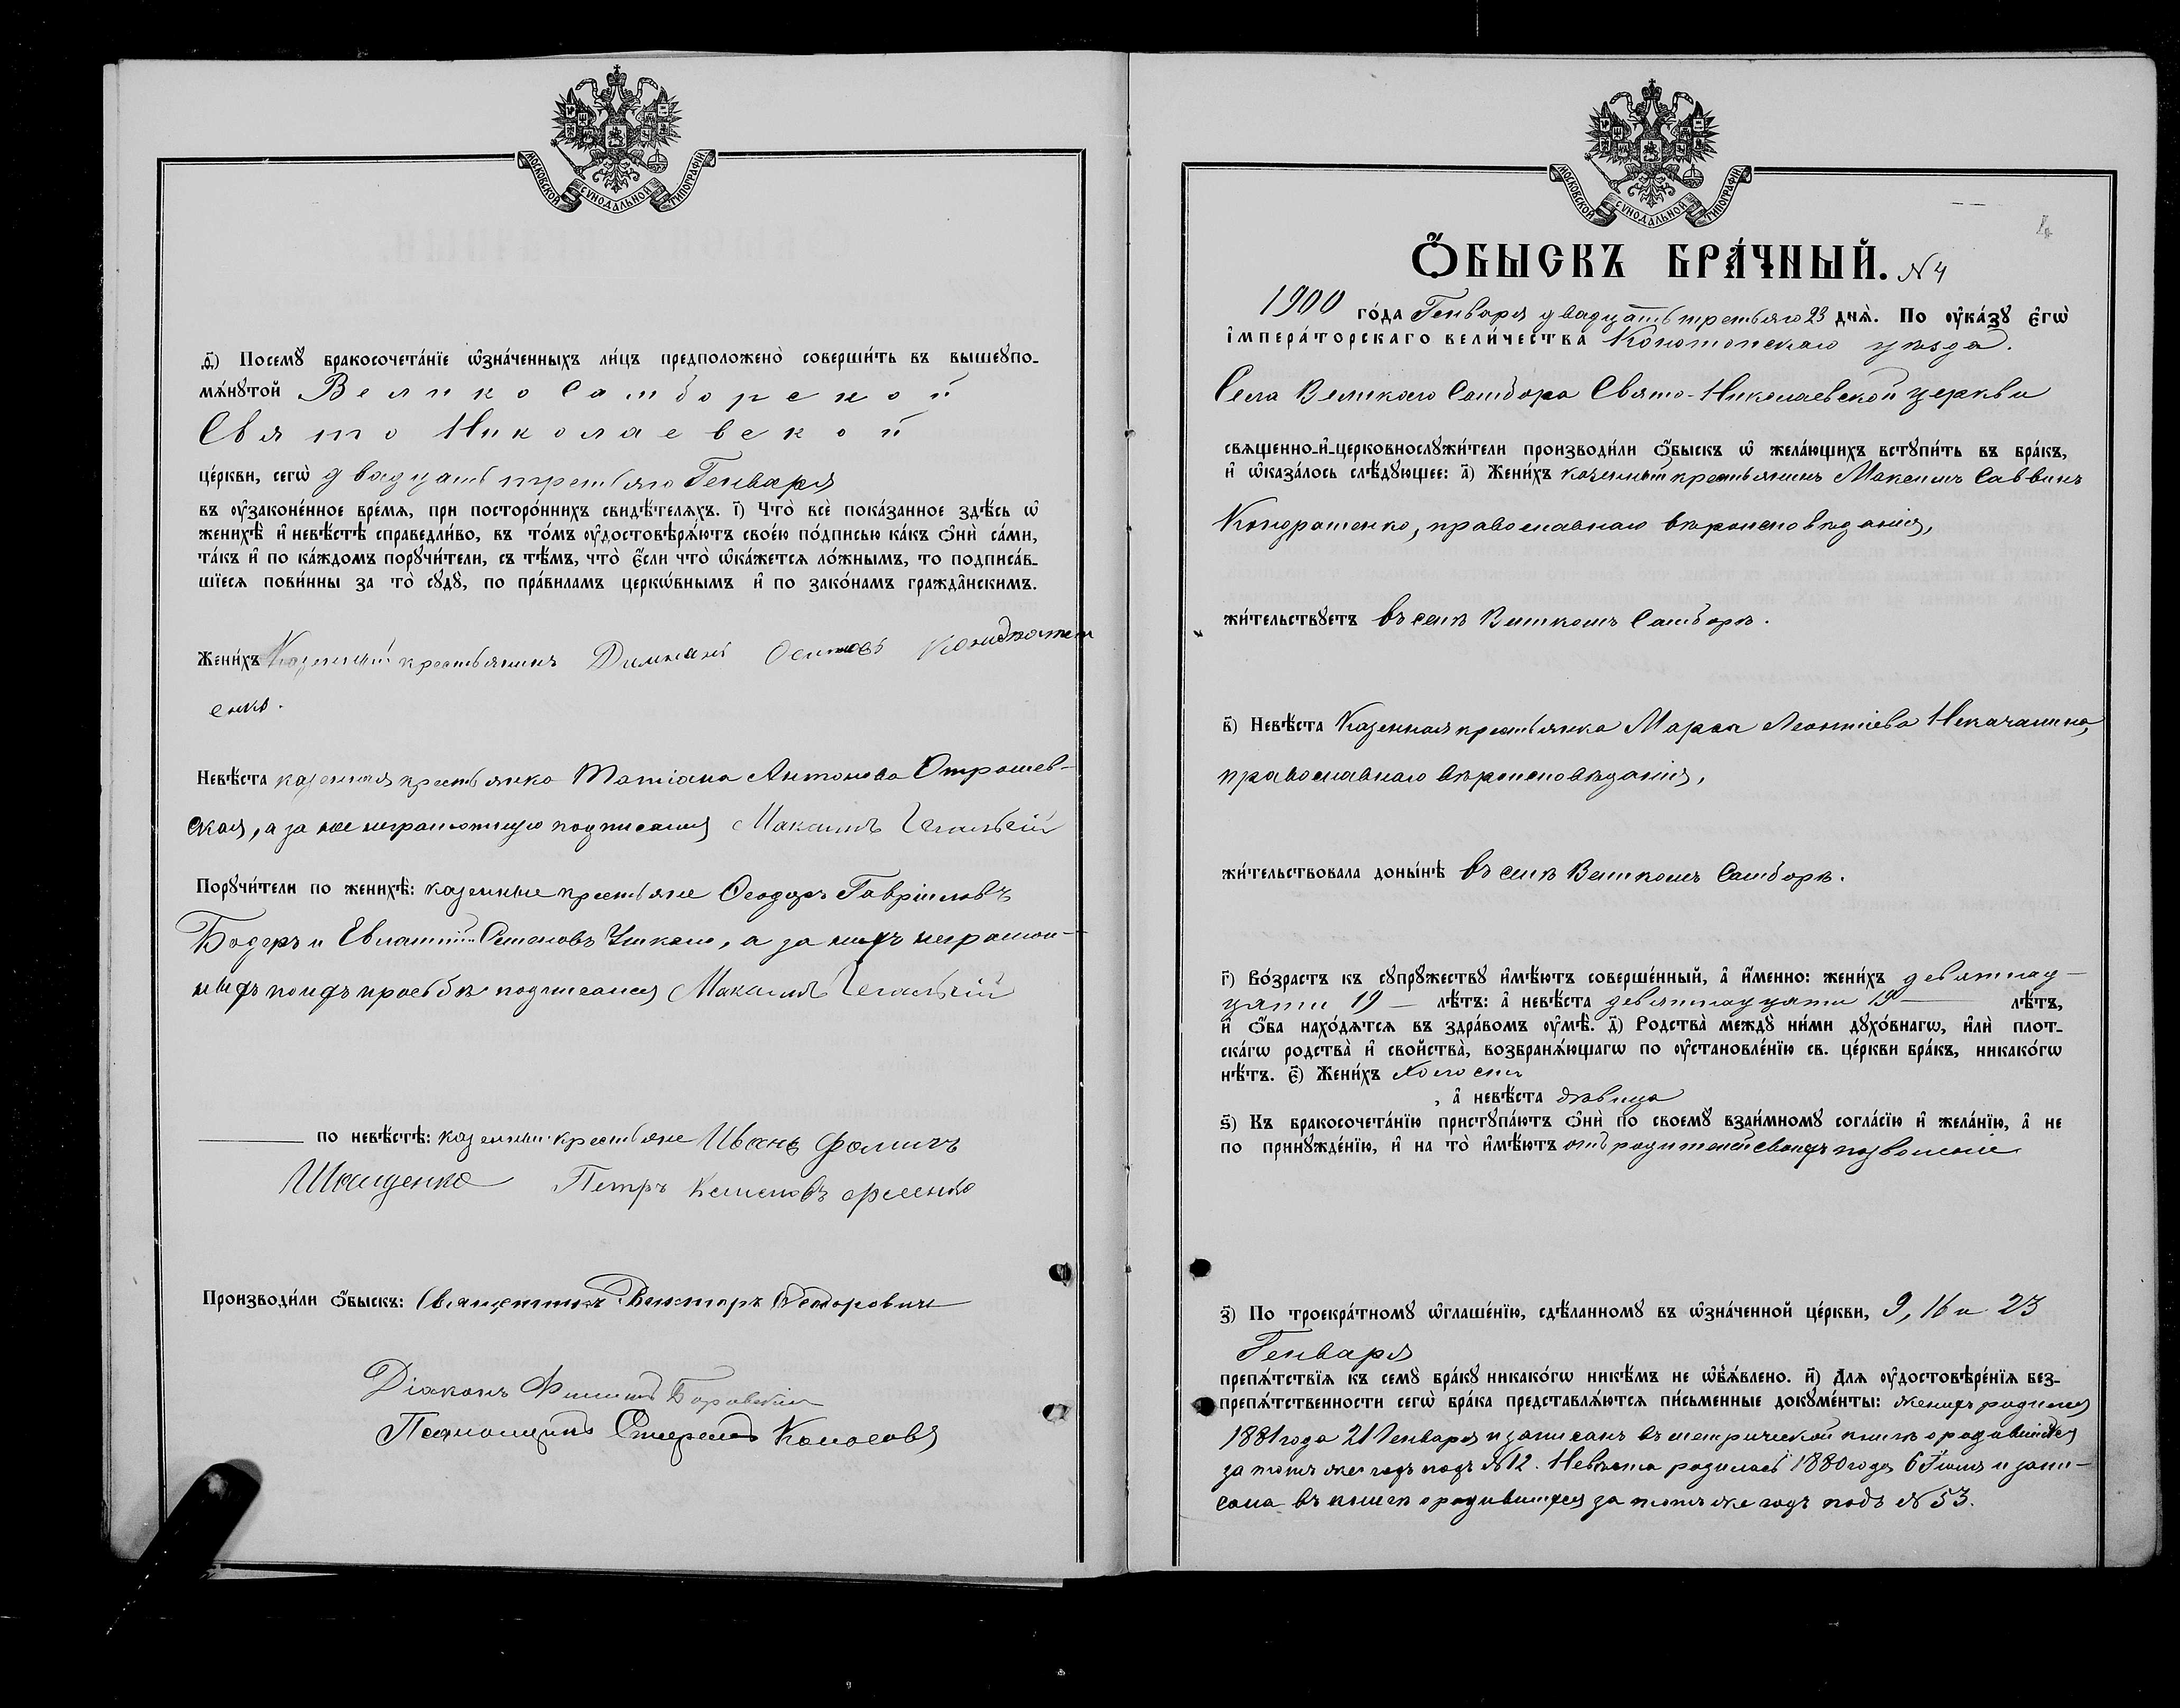 МОСКОВСКОЙ СѴНОДАЛЬНОЙ ТИПОГРАФІИ
д҃) Посемꙋ̀ бракосочета́нїе ѡ҆зна́ченныхъ ли́цъ предположено̀ соверши́ть въ вышеꙋпо-
мѧ́нꙋтой Велико Самборской
Свято Николаевской
це́ркви, сегѡ̀ двадцать третьяго Генваря
въ ᲂу҆законе́нное вре́мѧ, при посторо́ннихъ свидѣ́телѧхъ. і҃) Что̀ всѐ пока́занное здѣ́сь ѡ҆
женихѣ̀ и҆ невѣ́стѣ справедли́во, въ то́мъ ᲂу҆достовѣрѧ́ютъ свое́ю по́дписью ка́къ ѻ҆нѝ са́ми,
та́къ и҆ по ка́ждомъ порꙋчи́тели, съ тѣ́мъ, что̀ є҆́сли что̀ ѡ҆ка́жетсѧ ло́жнымъ, то подписа́в-
шїесѧ пови́нны за то̀ сꙋдꙋ̀, по пра́виламъ церкѡ́внымъ и҆ по зако́намъ гражда̂нскимъ.
Жени́хъ Казенный крестьянинъ Осиповъ
енко.
Невѣ́ста казенная крестьянка Татіана Антонова Отрошев-
ская, а за нее неграмотную подписался Максимъ
Порꙋчи́тели по женихѣ̀: казенные крестьяне Ѳеодоръ Гавріиловъ
Бодеръ и Евлампій Семеновъ а за нихъ неграмот-
ныхъ по ихъ просьбѣ подписался Максимъ
по невѣ́стѣ: казенные крестьяне Иванъ Фомичъ
Иващенко Петръ
Производи́ли ѻ҆́быскъ: Священникъ Викторъ Ѳедоровичъ
Діаконъ Филиппъ Боровскій
Псаломщикъ Спиридонъ Колосовъ
МОСКОВСКОЙ СѴНОДАЛЬНОЙ ТИПОГРАФІИ
4
Ѻ҆́БЫСКЪ БРА́ЧНЫЙ. № 4
1900 го́да Генваря двадцать третьяго 23 днѧ̀. По ᲂу҆ка́зꙋ є҆гѡ̀
і҆мпера́торскаго вели́чества Конотопскаго уѣзда.
Села Великаго Самбора Свято-Николаевской церкви
свѧщенно-и҆-церковнослꙋжи́тели производи́ли ѻ҆́быскъ ѡ҆ жела́ющихъ встꙋпи́ть въ бра́къ,
и҆ ѡ҆каза́лось слѣ́дꙋющее: а҃) Жени́хъ казенный крестьянинъ Максимъ Саввинъ
Кондратенко, православнаго вѣроисповѣданія,
жи́тельствꙋетъ въ селѣ Великомъ Самборѣ.
в҃) Невѣ́ста Казенная крестьянка Марѳа Леонтіева
православнаго вѣроисповѣданія,
жи́тельствовала доны́нѣ въ селѣ Великомъ Самборѣ.
г҃) Во́зрастъ къ сꙋпрꙋ́жествꙋ и҆мѣ́ютъ соверше́нный, а҆ и҆́менно: жени́хъ девятнад-
цати 19 — лѣ́тъ: а҆ невѣ́ста девятнадцати 19 — лѣ́тъ,
и҆ ѻ҆́ба нахо́дѧтсѧ въ здра́вомъ ᲂу҆мѣ̀. д҃) Родства̀ междꙋ̀ ни́ми дꙋхо́внагѡ, и҆лѝ плот-
ска́гѡ родства̀ и҆ свойства̀, возбранѧ́ющагѡ по ᲂу҆становле́нїю св. це́ркви бра́къ, никако́гѡ
нѣ́тъ. є҃) Жени́хъ холостъ
, а҆ невѣ́ста дѣвица
ѕ҃) Къ бракосочета́нїю пристꙋпа́ютъ ѻ҆нѝ по своемꙋ̀ взаи́мномꙋ согла́сїю и҆ жела́нїю, а҆ не
по принꙋжде́нїю, и҆ на то̀ и҆мѣ́ютъ отъ родителей своихъ позволеніе
з҃) По троекра́тномꙋ ѡ҆глаше́нїю, сдѣ́ланномꙋ въ ѡ҆зна́ченной це́ркви, 9, 16 и 23
Генваря
препѧ́тствїѧ къ семꙋ̀ бра́кꙋ никако́гѡ никѣ́мъ не ѡ҆б̾ѧ́влено. и҃) Длѧ̀ ᲂу҆достовѣре́нїѧ без-
препѧ́тственности сегѡ̀ бра́ка представлѧ́ютсѧ пи́сьменные докꙋме́нты: женихъ родился
1881 года 21 Генваря и записанъ въ метрической книгѣ о родившихся
за тотъ же годъ подъ №12. Невѣста родилась 1880 года 6 и запи-
сана въ книгѣ о родившихся за тотъ же годъ подъ № 53.